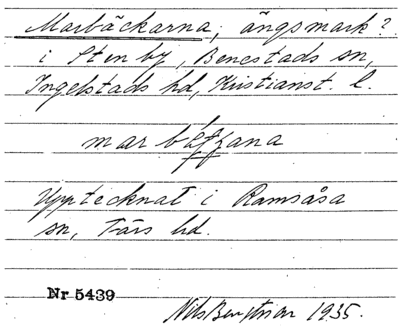 Marbäckarna, ängsmark?
i Sten by, Benestads sn,
Ingelstads hd, Kristianst. l.
mar
Upptecknat i Ramsåsa
sn, Färs hd.
Nr 5439
Nils Bengtson 1935.